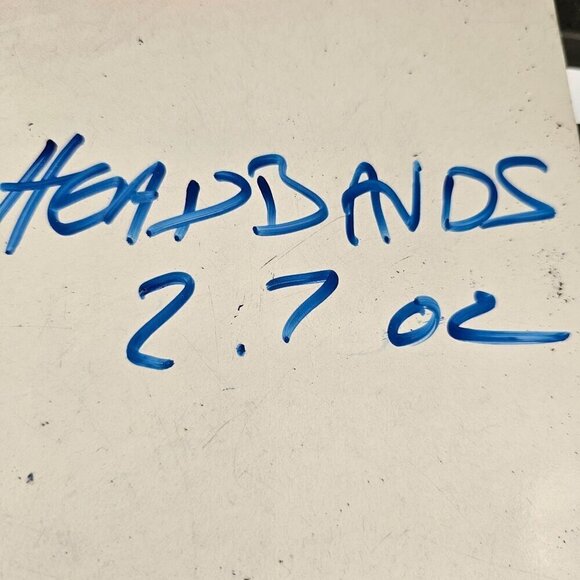 HEADBANDS
2.7 oz